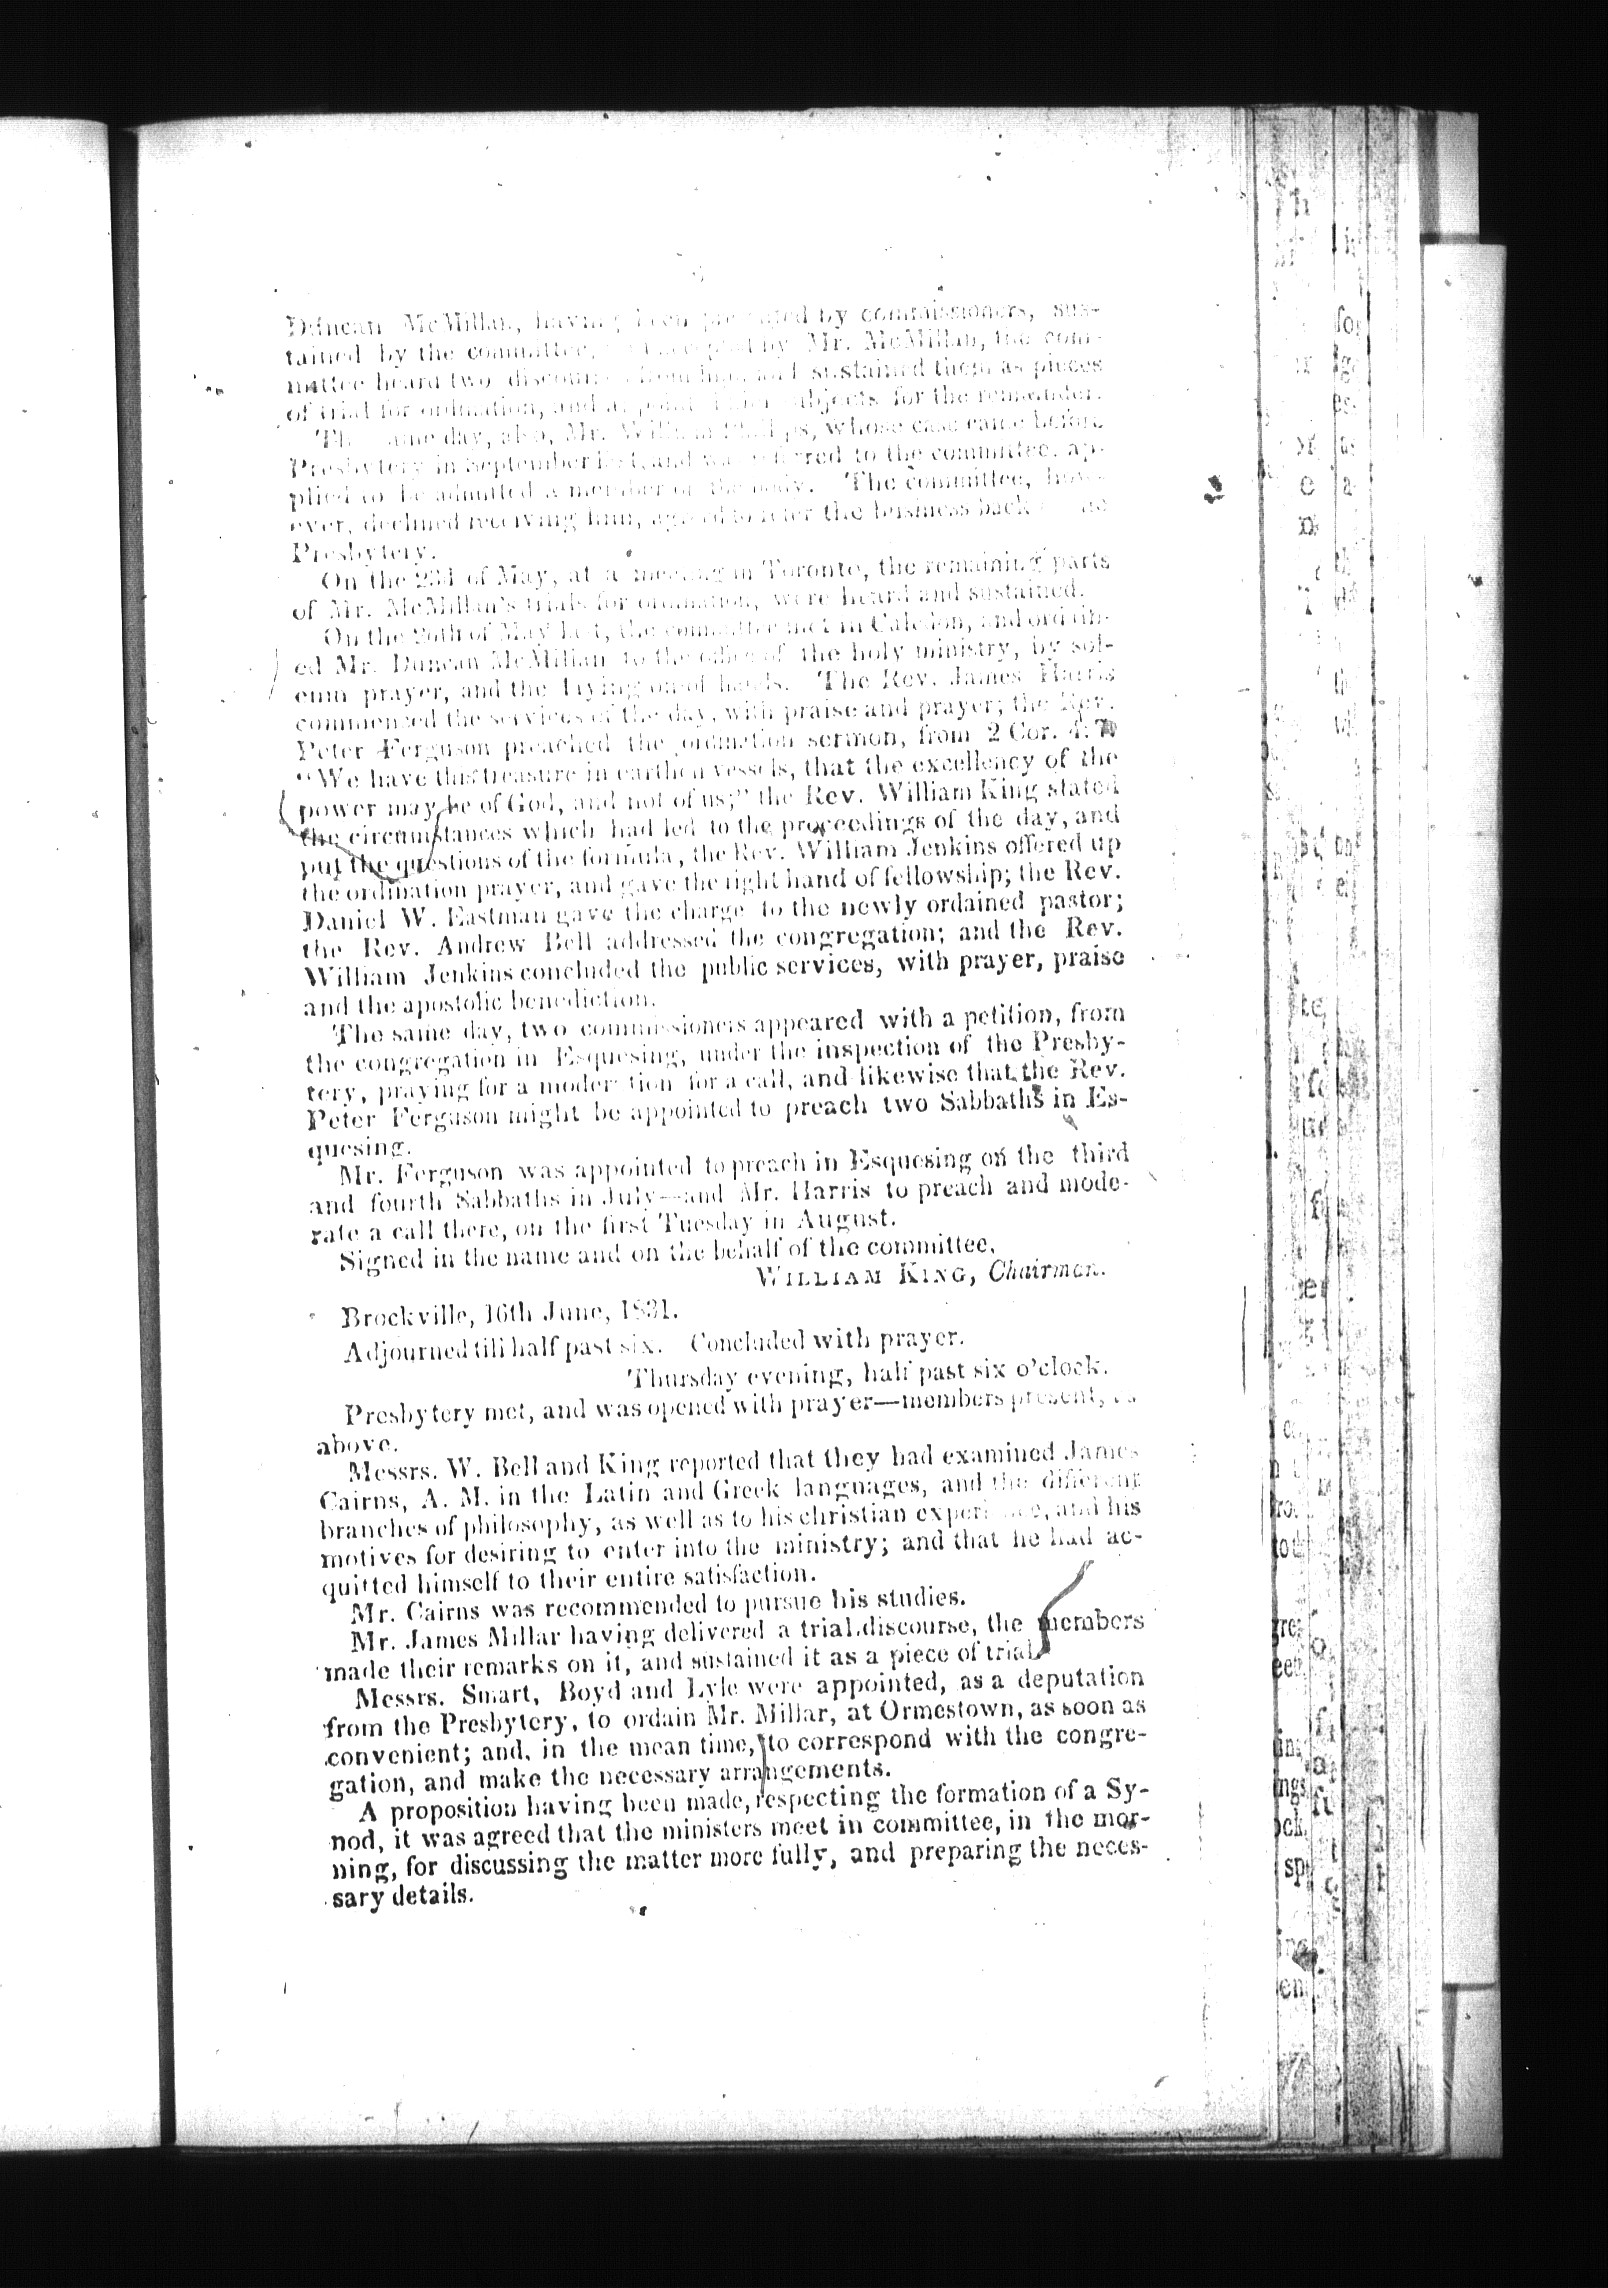 Duncan McMillan, having been presented by commissioners, sus-
tained by the committee, accepted by Mr. McMillan, the com-
mittee heard two discourses from him, and sustained them as pieces
of trial for ordination, and appointed subjects for the remainder.
The same day, also, Mr. William Phillips, whose case came before
Presbytery in September last, and was referred to the committee, ap-
plied to be admitted a member of the body. The committee, how-
ever, declined receiving him, agreed to refer the business back
Presbytery.
On the 23d of May, at a meeting in Toronto, the remaining parts
of Mr. McMillan's trials for ordination, were heard and sustained.
On the 26th of May last, the committee met in Caledon, and ordain-
ed Mr. Duncan McMillan to the office of the holy ministry, by sol-
emn prayer, and the laying on of hands. The Rev. James Harris
commenced the services of the day, with praise and prayer; the Rev.
Peter Ferguson preached the ordination sermon, from 2 Cor. 4: 7
"We have this treasure in earthen vessels, that the excellency of the
power may be of God, and not of us;" the Rev. William King stated
the circumstances which had led to the proceedings of the day, and
put the questions of the formula, the Rev. William Jenkins offered up
the ordination prayer, and gave the right hand of fellowship; the Rev.
Daniel W. Eastman gave the charge to the newly ordained pastor;
the Rev. Andrew Bell addressed the congregation; and the Rev.
William Jenkins concluded the public services, with prayer, praise
and the apostolic benediction.
The same day, two commissioners appeared with a petition, from
the congregation in Esquesing, under the inspection of the Presby-
tery, praying for a moderation for a call, and likewise that the Rev.
Peter Ferguson might be appointed to preach two Sabbaths in Es-
quesing.
Mr. Ferguson was appointed to preach in Esquesing on the third
and fourth Sabbaths in July—and Mr. Harris to preach and mode-
rate a call there, on the first Tuesday in August.
Signed in the name and on the behalf of the committee,
WILLIAM KING, Chairman.
Brockville, 16th June, 1831.
Adjourned till half past six. Concluded with prayer.
Thursday evening, half past six o'clock.
Presbytery met, and was opened with prayer—members present, as
above.
Messrs. W. Bell and King reported that they had examined James
Cairns, A. M. in the Latin and Greek languages, and the different
branches of philosophy, as well as to his christian experience, and his
motives for desiring to enter into the ministry; and that he had ac-
quitted himself to their entire satisfaction.
Mr. Cairns was recommended to pursue his studies.
Mr. James Millar having delivered a trial discourse, the members
made their remarks on it, and sustained it as a piece of trial.
Messrs. Smart, Boyd and Lyle were appointed, as a deputation
from the Presbytery, to ordain Mr. Millar, at Ormestown, as soon as
convenient; and, in the mean time, to correspond with the congre-
gation, and make the necessary arrangements.
A proposition having been made, respecting the formation of a Sy-
nod, it was agreed that the ministers meet in committee, in the mor-
ning, for discussing the matter more fully, and preparing the neces-
sary details.